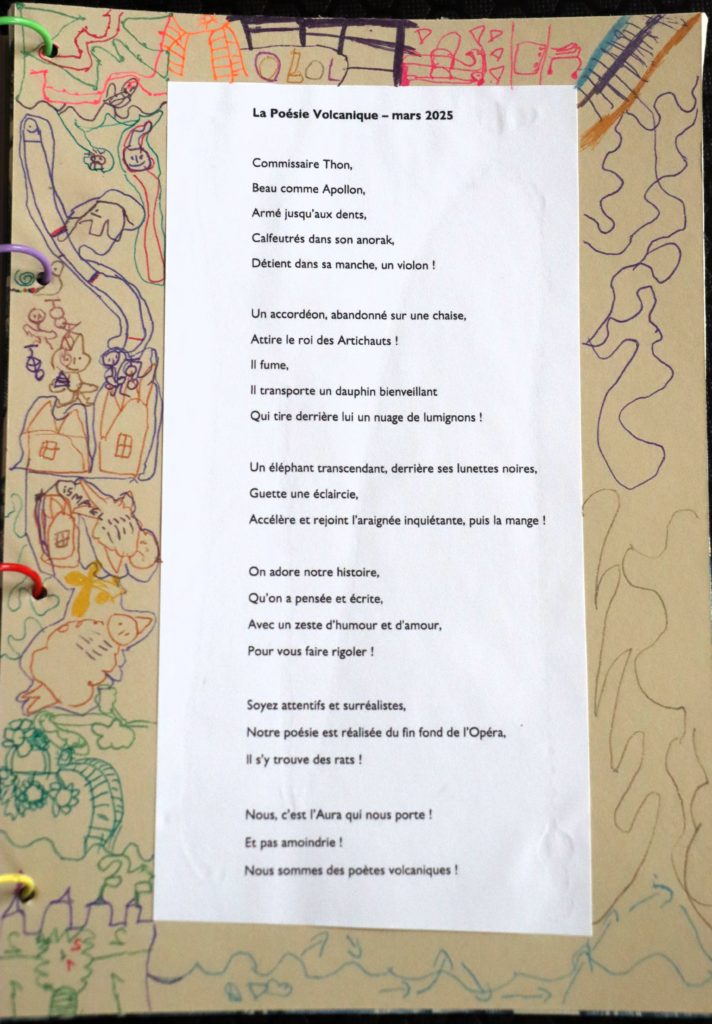 OLOL
La Poésie Volcanique – mars 2025
Commissaire Thon,
Beau comme Apollon,
Armé jusqu'aux dents,
Calfeutrés dans son anorak,
Détient dans sa manche, un violon !
Un accordéon, abandonné sur une chaise,
Attire le roi des Artichauts !
Il fume,
Il transporte un dauphin bienveillant
Qui tire derrière lui un nuage de lumignons !
Un éléphant transcendant, derrière ses lunettes noires,
Guette une éclaircie,
Accélère et rejoint l'araignée inquiétante, puis la mange !
On adore notre histoire,
Qu'on a pensée et écrite,
Avec un zeste d'humour et d'amour,
Pour vous faire rigoler !
Soyez attentifs et surréalistes,
Notre poésie est réalisée du fin fond de l'Opéra,
Il s'y trouve des rats !
Nous, c'est l'Aura qui nous porte !
Et pas amoindrie !
Nous sommes des poètes volcaniques !